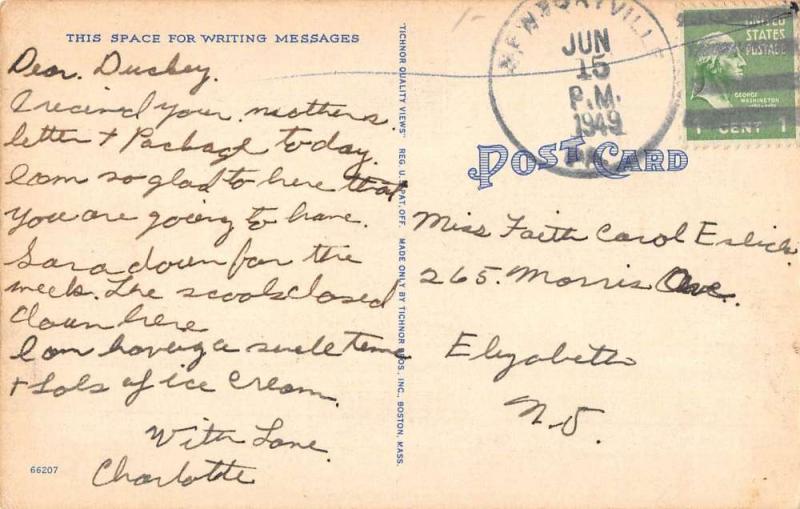 THIS SPACE FOR WRITING MESSAGES
Dear. Duckey.
I recived your mothers.
letter + Package today.
I am so glad to here that
you are going to have.
Sara down for the
week. The scools closed
down here
I am having a swell teme
+ Lots of ice Cream.
With Love.
Charlotte
66207
"TICHNOR QUALITY VIEWS" REG. U.S. PAT. OFF. MADE ONLY BY TICHNOR BROS., INC., BOSTON, MASS.
JUN
15
P.M.
1949
UNITED
STATES
POSTAGE
GEORGE
WASHINGTON
1 CENT 1
POST CARD
Miss Faith Carol Eslich
265. Morris Ave.
Elizabeth
N.J.